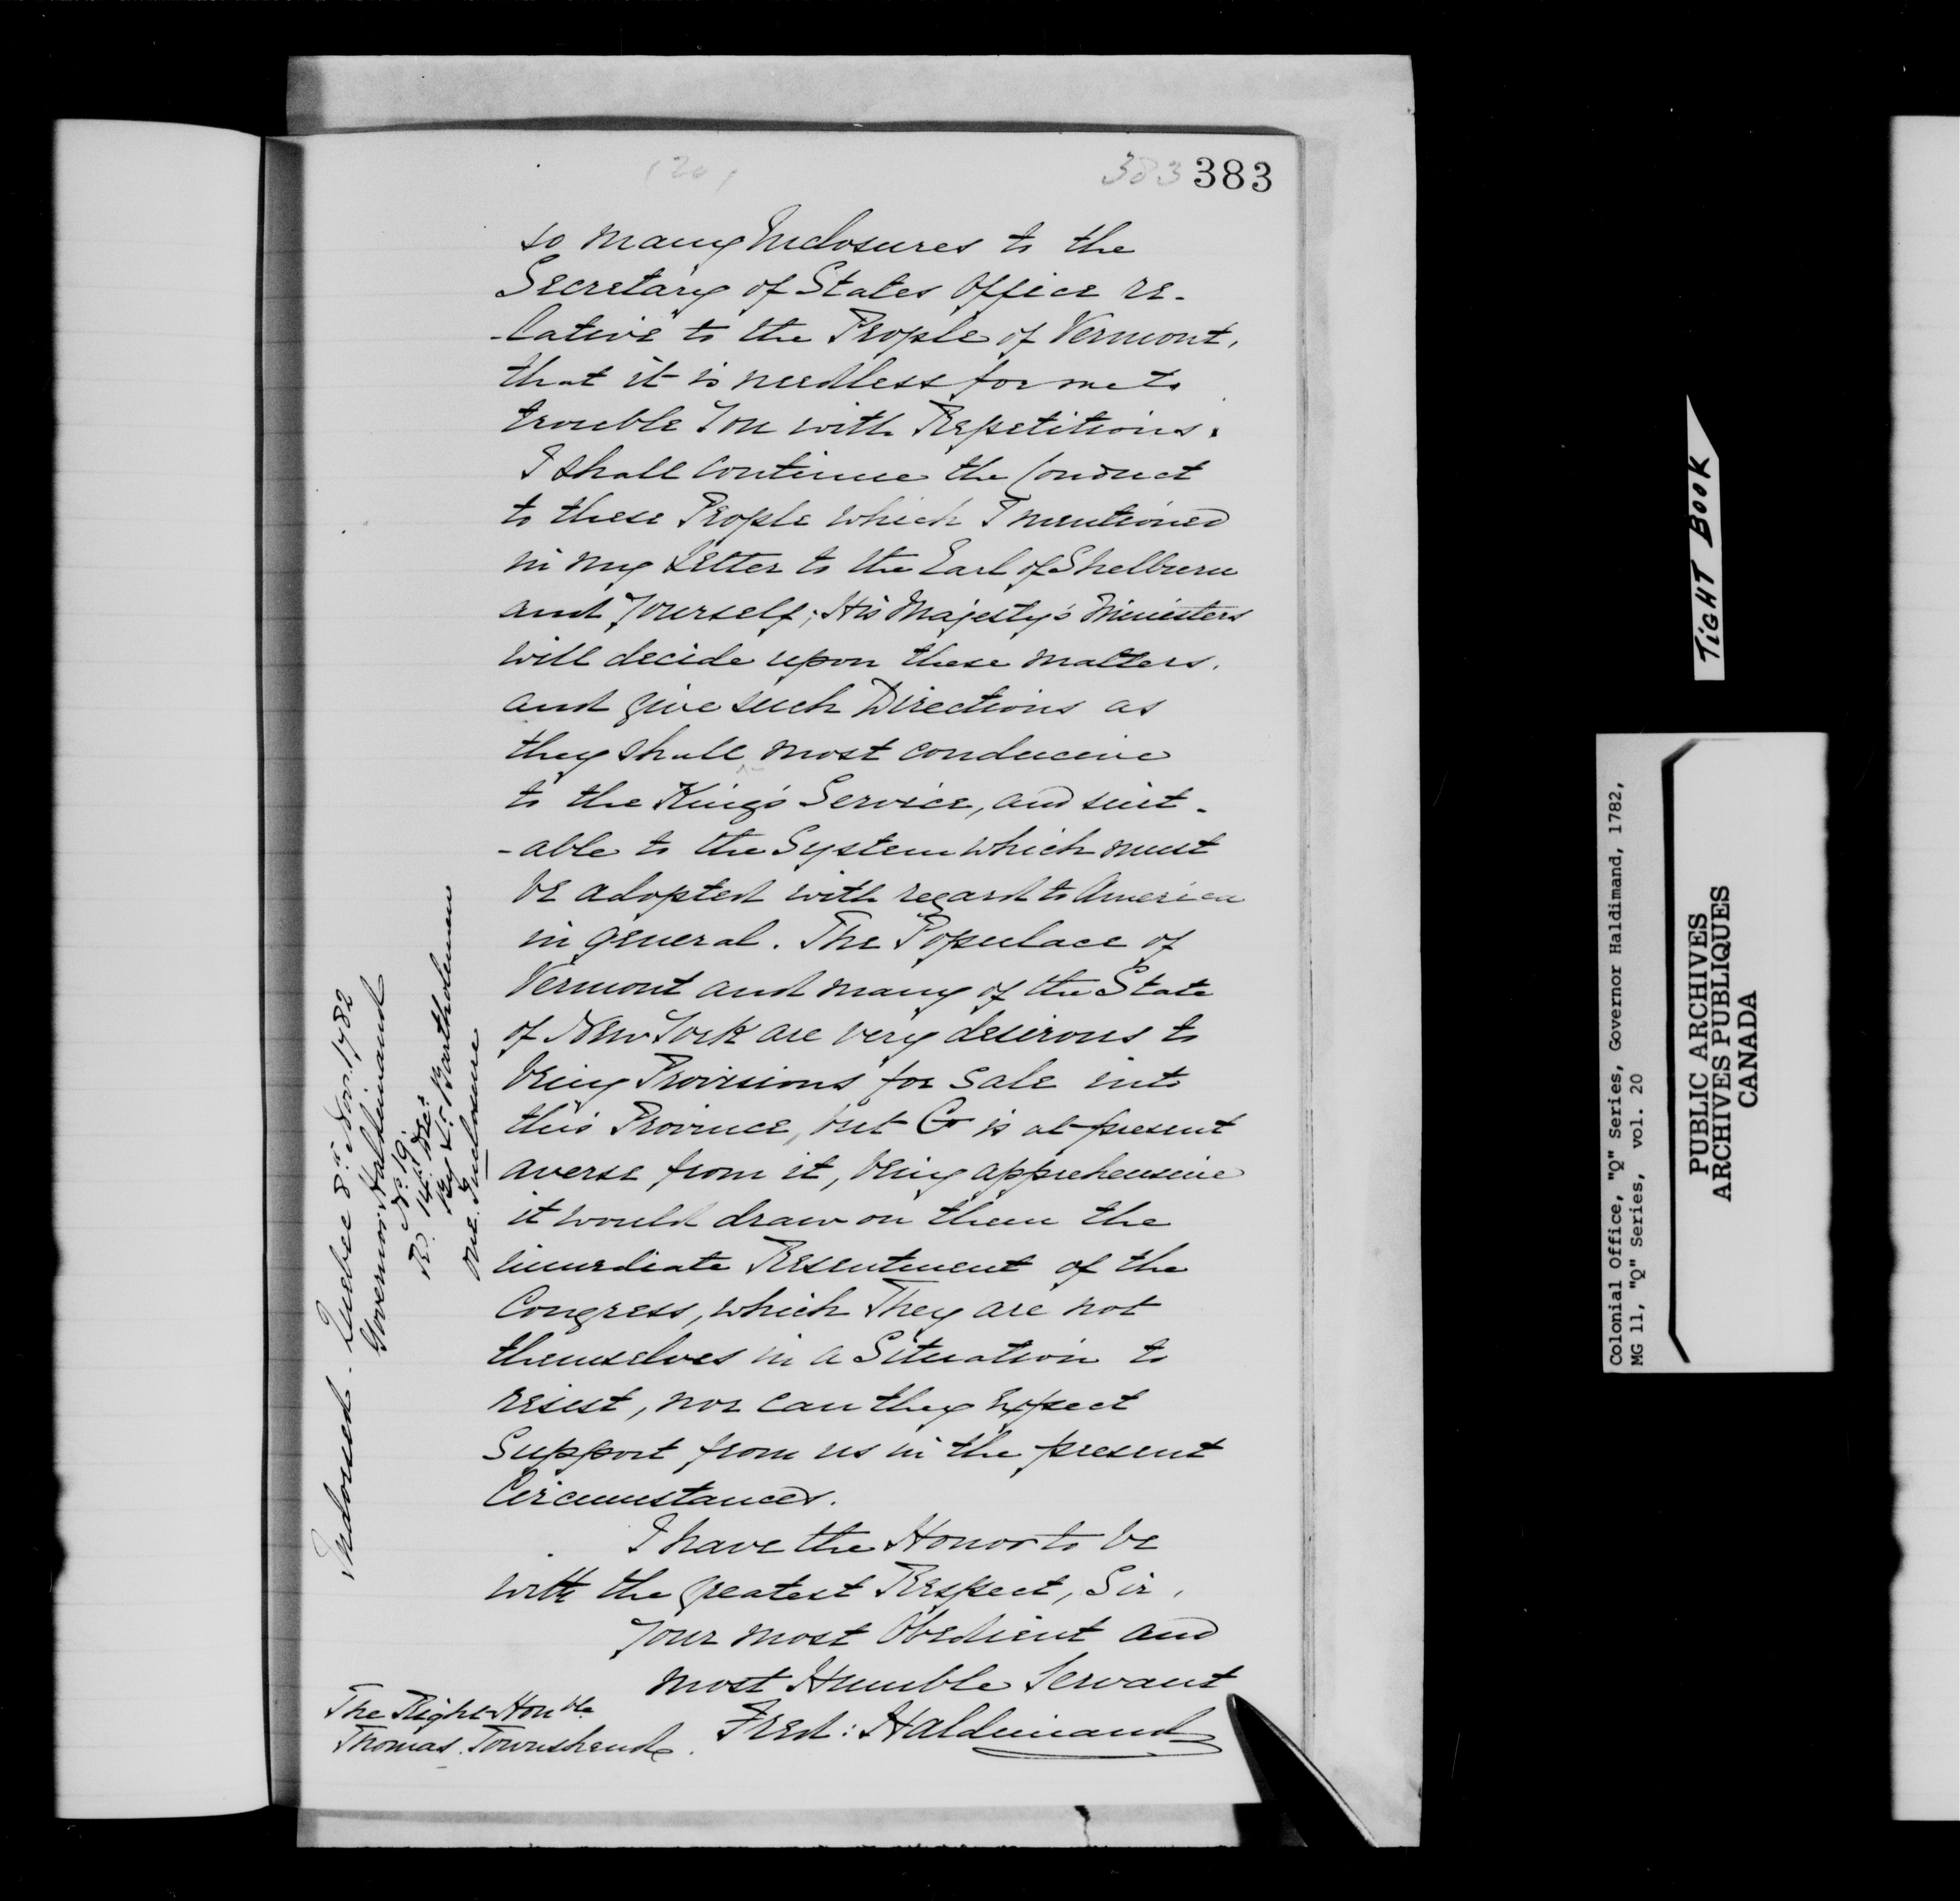 (20)
383 383
so many Inclosures to the
Secretary of States Office re-
-lative to the People of Vermont,
that it is needless for me to
trouble You with Repetitions.
I shall continue the Conduct
to these People which I mentioned
in my Letter to the Earl of Shelburn
and Yourself; His Majesty's Ministers
will decide upon these matters,
and give such Directions as
they shall most conducive
to the King's Service, and suit-
-able to the System which must
be adopted with regard to America
in general. The Populace of
Vermont and many of the State
of New York are very desirous to
bring Provisions for Sale into
this Province, but Gr is at present
averse from it, being apprehensive
it would draw on them the
immediate Resentment of the
Congress, which They are not
themselves in a Situation to
resist, nor can they expect
Support from us in the present
Circumstances.
I have the Honor to be
with the greatest Respect, Sir,
Your most Obedient and
most Humble Servant
Fred: Haldimand
The Right Honble
Thomas Townshend.
Indorsed. Quebec 8th Nov. 1782
Governor Haldimand
No. 19.
R. 14th Decr
By Lr. Bartholemew
One Inclosure
TIGHT BOOK
Colonial Office, "Q" Series, Governor Haldimand, 1782,
MG 11, "Q" Series, vol. 20
PUBLIC ARCHIVES
ARCHIVES PUBLIQUES
CANADA